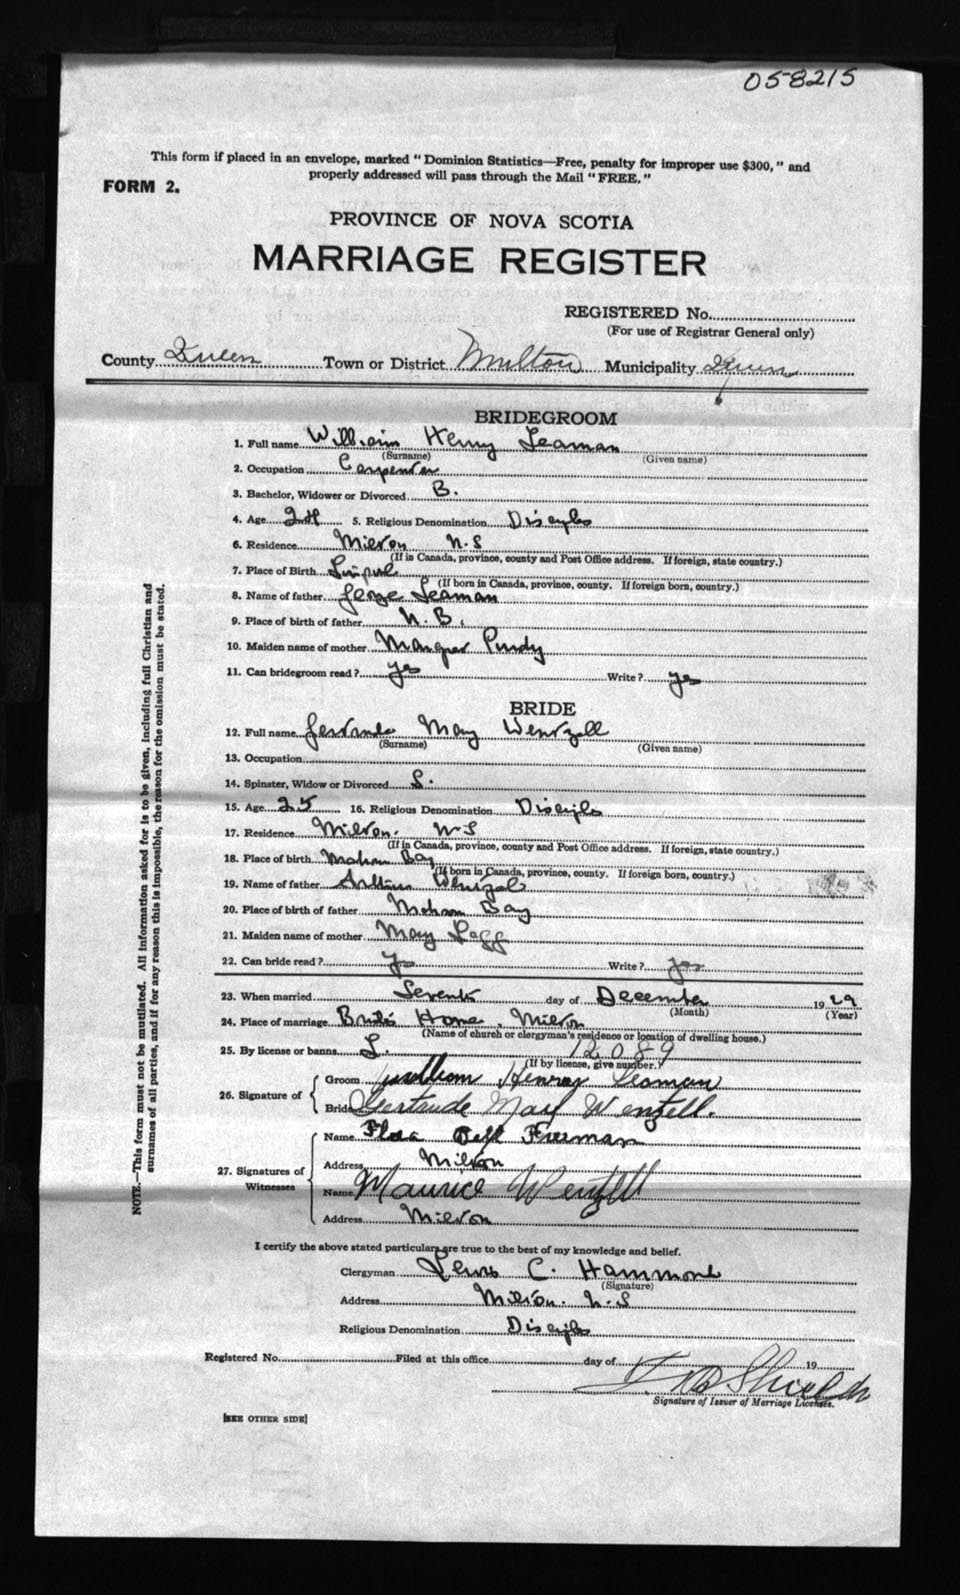 058215
This form if placed in an envelope, marked "Dominion Statistics—Free, penalty for improper use $300," and
properly addressed will pass through the Mail "FREE."
FORM 2.
PROVINCE OF NOVA SCOTIA
MARRIAGE REGISTER
REGISTERED No.
(For use of Registrar General only)
County Queen Town or District Milton Municipality Queen
BRIDEGROOM
1. Full name William Henry Seaman
(Surname) (Given name)
2. Occupation Carpenter
3. Bachelor, Widower or Divorced B.
4. Age 24 5. Religious Denomination Disciples
6. Residence Milton N.S
(If in Canada, province, county and Post Office address. If foreign, state country.)
7. Place of Birth
(If born in Canada, province, county. If foreign born, country.)
8. Name of father George Seaman
9. Place of birth of father N.B.
10. Maiden name of mother Margaret Purdy
11. Can bridegroom read? yes Write? yes
BRIDE
12. Full name Gertrude May Wentzell
(Surname) (Given name)
13. Occupation
14. Spinster, Widow or Divorced S.
15. Age 25 16. Religious Denomination Disciples
17. Residence Milton. N.S
(If in Canada, province, county and Post Office address. If foreign, state country.)
18. Place of birth Mahone Bay
(If born in Canada, province, county. If foreign born, country.)
19. Name of father Wentzel
20. Place of birth of father Mahone Bay
21. Maiden name of mother May
22. Can bride read? yes Write? yes
23. When married Seventh day of December 1929
(Month) (Year)
24. Place of marriage Bride's Home, Milton
(Name of church or clergyman's residence or location of dwelling house.)
25. By license or banns L. 12089
(If by license, give number.)
26. Signature of
Groom William Henry Seaman
Bride Gertrude May Wentzell.
27. Signatures of Witnesses
Name Flora Bell Freeman
Address Milton
Name Maurice Wentzell
Address Milton
I certify the above stated particulars are true to the best of my knowledge and belief.
Clergyman Lewis C. Hammond
(Signature)
Address Milton. N.S
Religious Denomination Disciples
Registered No. Filed at this office day of 19
Shields
Signature of Issuer of Marriage Licenses.
[SEE OTHER SIDE]
NOTE.—This form must not be mutilated. All information asked for is to be given, including full Christian and
surnames of all parties, and if for any reason this is impossible, the reason for the omission must be stated.